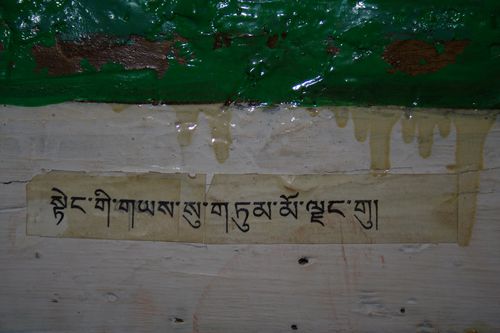 སྟེང་གི་གཡས་སུ་གཏུམ་མོ་ལྗང་གུ།